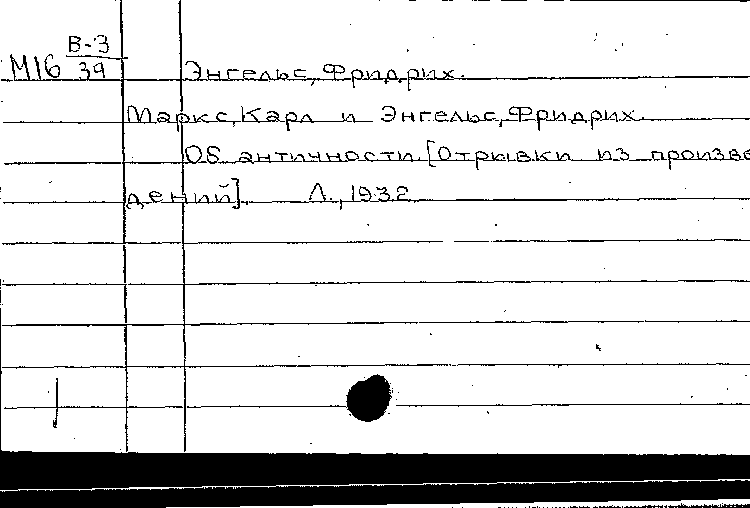 В-3
М16 39 Энгельс, Фридрих.
Маркс, Карл и Энгельс, Фридрих.
Об античности. [Отрывки из произве
дений]. Л., 1932